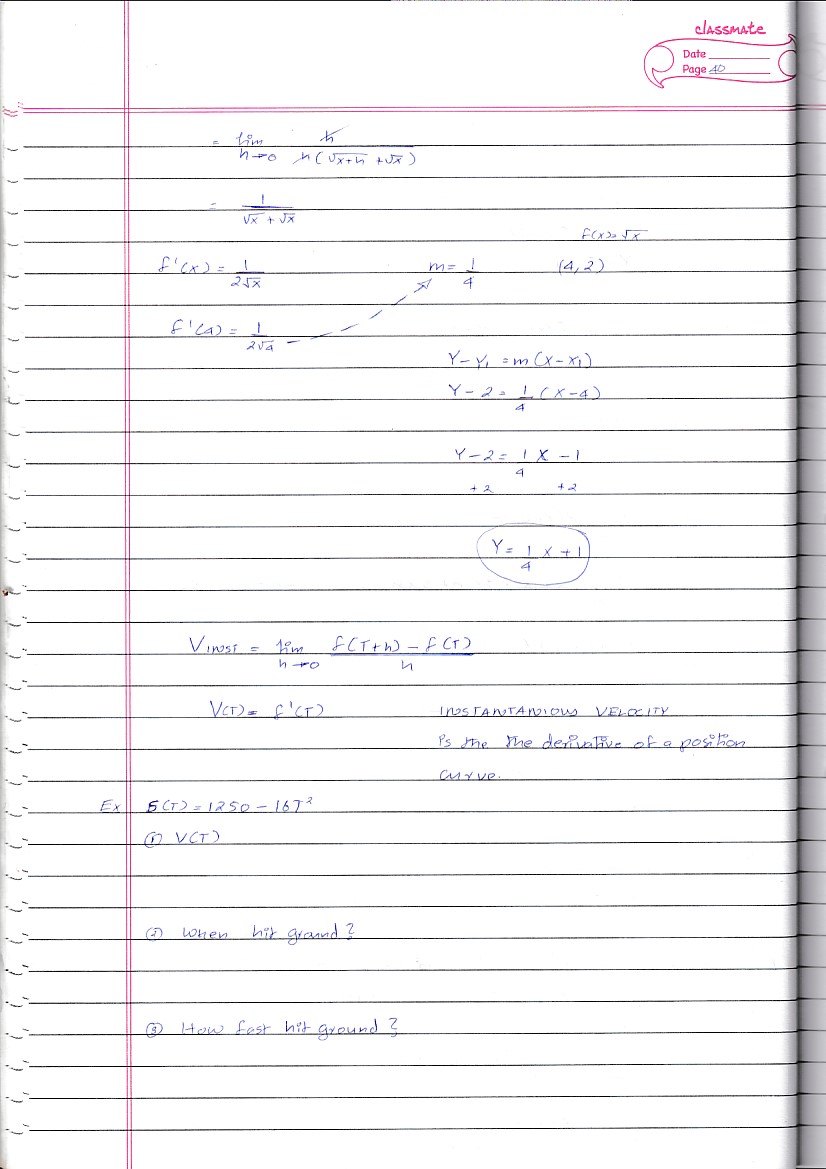 classmate
Date
Page 40
= lim h→0 h / h(√x+h + √x)
= 1 / √x + √x
f(x) = √x
f'(x) = 1 / 2√x    m = 1/4    (4, 2)
f'(4) = 1 / 2√4
Y - Y₁ = m(X - X₁)
Y - 2 = 1/4 (X - 4)
Y - 2 = 1/4 X - 1
+2    +2
Y = 1/4 X + 1
VINST = lim h→0 f(T+h) - f(T) / h
V(T) = f'(T)    INSTANTANIOUS VELOCITY
is the the derivative of a position
curve.
Ex S(T) = 1250 - 16T²
① V(T)
② When hit ground?
③ How fast hit ground?